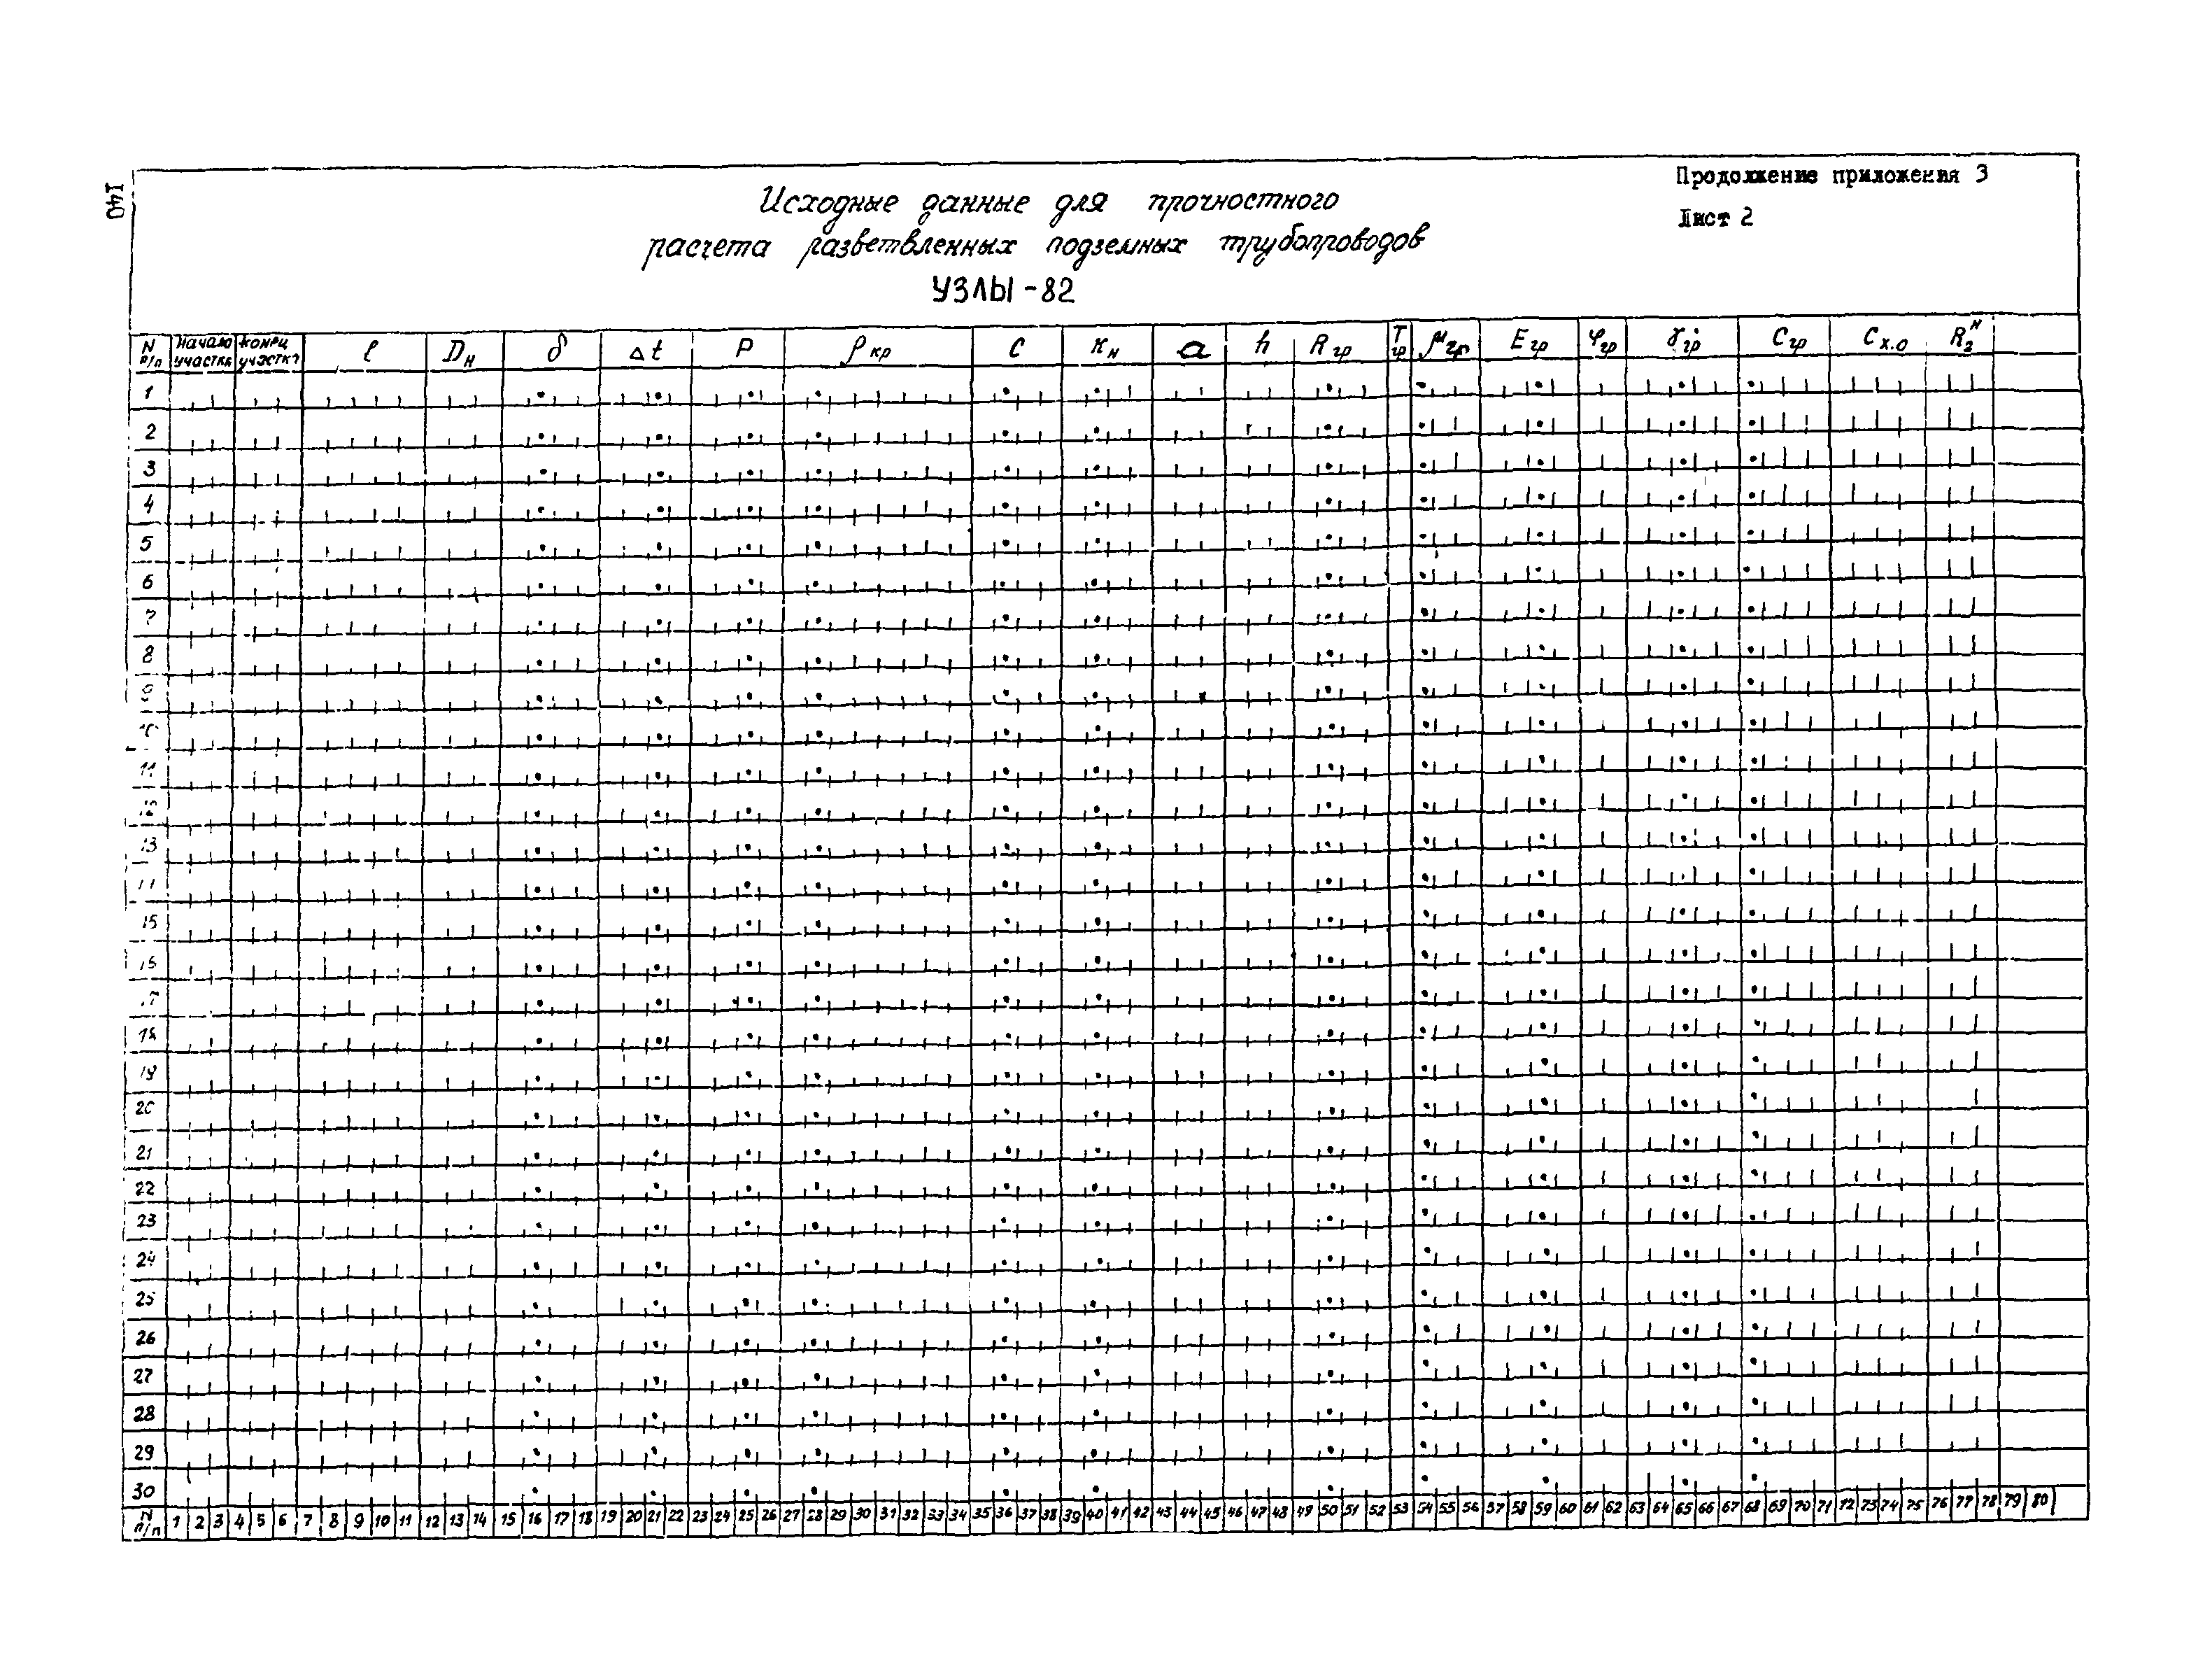 140
Продолжение приложения 3
Лист 2
Исходные данные для прочностного
расчета разветвленных подземных трубопроводов
УЗЛЫ-82
N п/п Начало участка конец участка ℓ Dн δ Δt P ρкр C Kн a h Rгр Tгр μгр Eгр φгр γгр Cгр Cx.o R₂ᴺ
1
2
3
4
5
6
7
8
9
10
11
12
13
15
16
17
18
19
20
21
22
23
24
25
26
27
28
29
30
N п/п 1 2 3 4 5 6 7 8 9 10 11 12 13 14 15 16 17 18 19 20 21 22 23 24 25 26 27 28 29 30 31 32 33 34 35 36 37 38 39 40 41 42 43 44 45 46 47 48 49 50 51 52 53 54 55 56 57 58 59 60 61 62 63 64 65 66 67 68 69 70 71 72 73 74 75 76 77 78 79 80